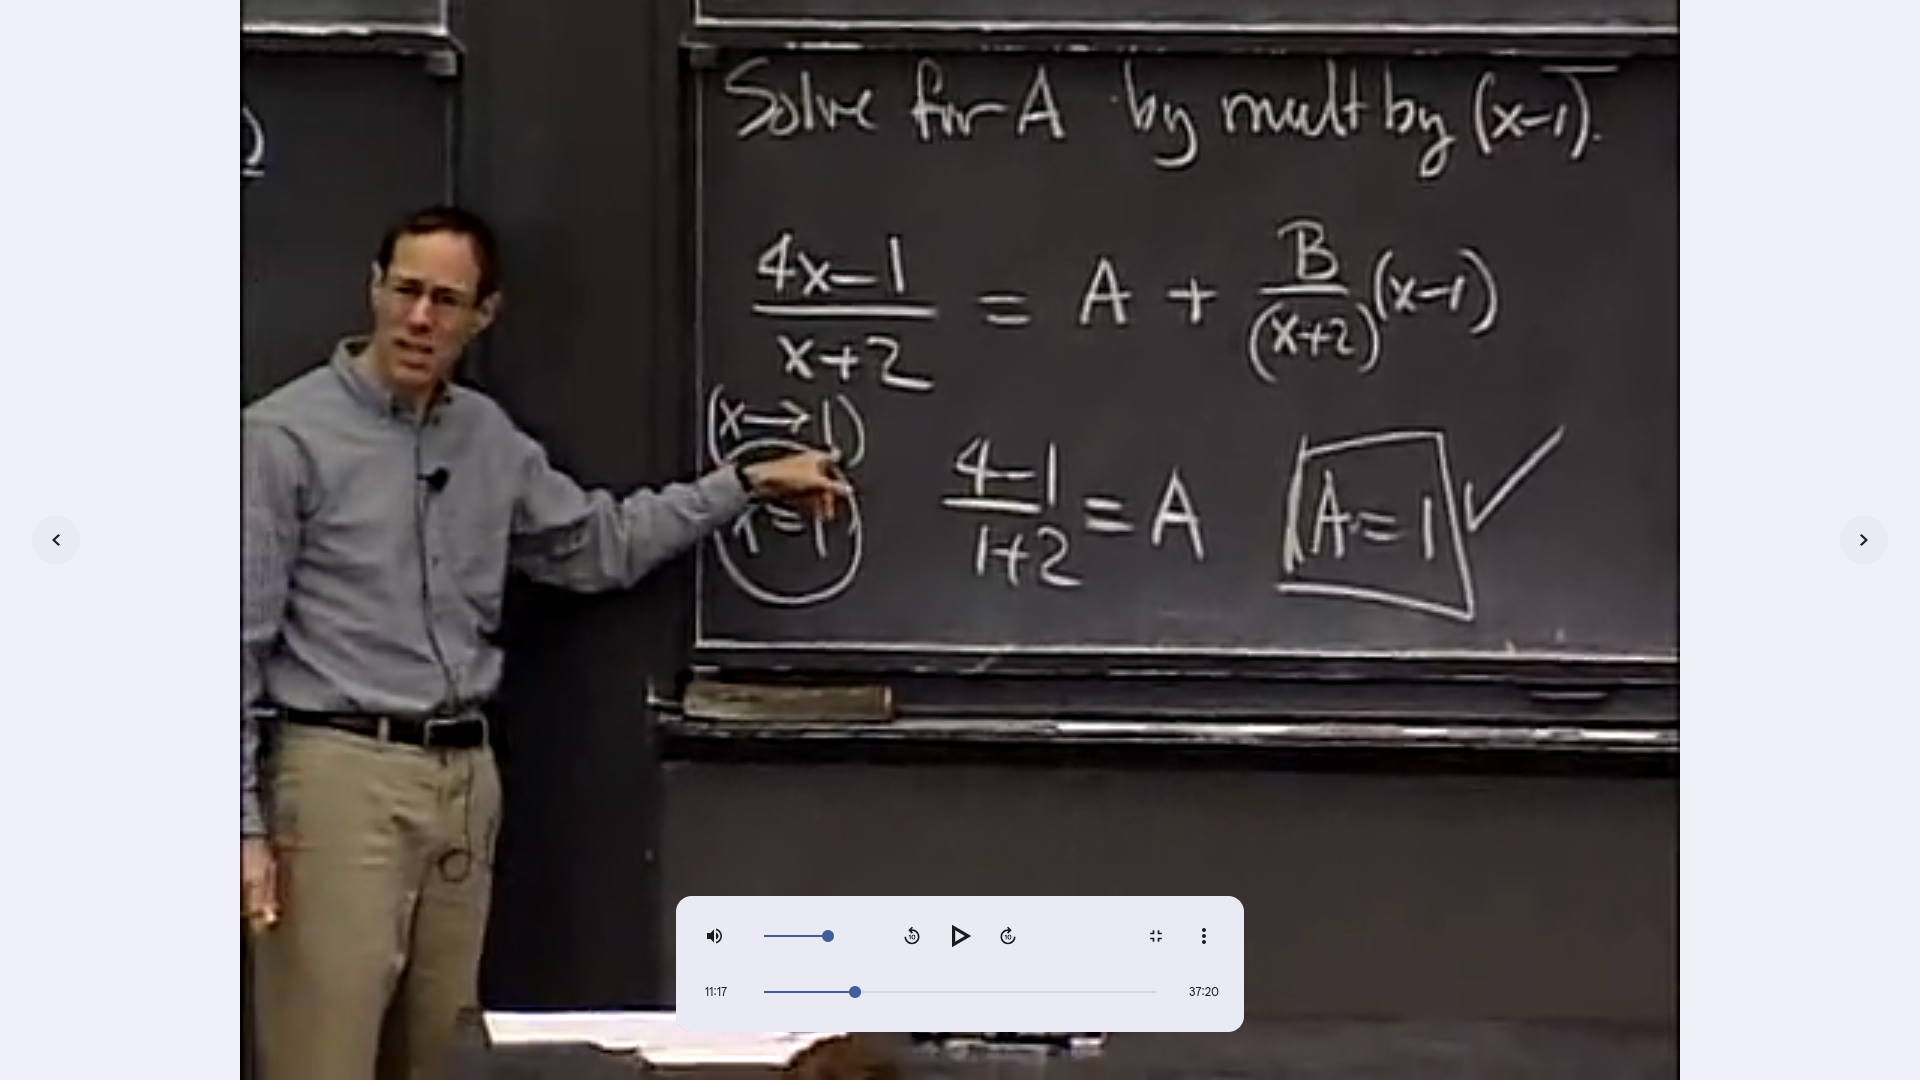 )
Solve for A by mult by (x-1).
4x-1
x+2
= A +
B
(x+2)
(x-1)
(x→1)
x=1
4-1
1+2
= A
A=1 ✓
10
10
11:17
37:20